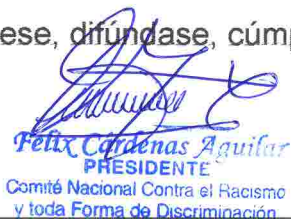 ese, difúndase, cúmp
Felix Cárdenas Aguilar
PRESIDENTE
Comité Nacional Contra el Racismo
y toda Forma de Discriminación